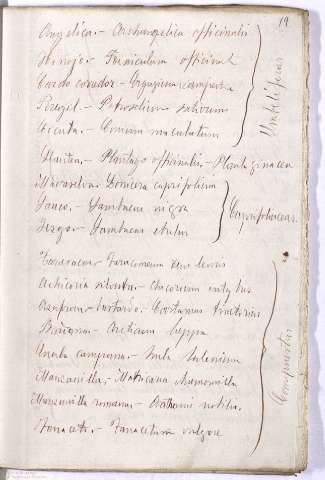 19
Angelica.- Archangelica officinalis
Hinojo.- Foeniculum officinal
Cardo corredor - Eryngium campestre
Peregil.- Petroselinum sativum
Cicuta.- Conium maculatum
Umbeliferas
Planten.- Plantago officinalis.- Plantaginacea
Madreselva.- Lonicera caprifolium
Sauco.- Sambucus nigra
Yezgo.- Sambucus ebulus
Caprifoliaceas.
Taraxacon.- Taraxacum dens leonis
Achicoria silvestre.- Chicorium intybus
Azafran bastardo.- Cartamus tinctorius
Bardana.- Arctium lappa
Enula campana.- Inula helenium
Manzanilla.- Matricaria chamomilla
Manzanilla romana.- Anthemis nobilis.
Tanaceto.- Tanacetum vulgare
Compuestas